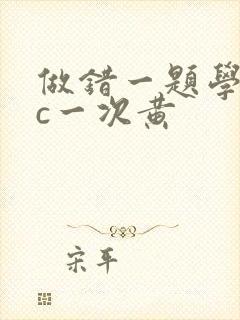 做錯一題學
c一次黄
宋平